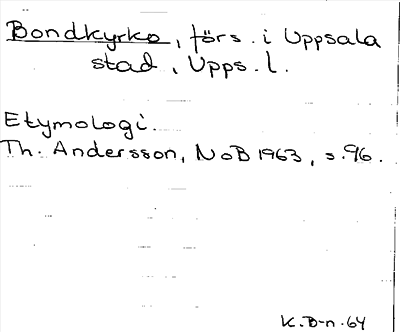 Bondkyrko, förs. i Uppsala
stad, Upps. l.
Etymologi.
Th. Andersson, NoB 1963, s. 96.
K. B-n. 64